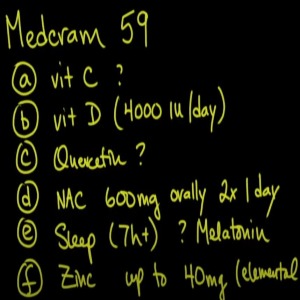 Medcram 59
ⓐ vit C ?
ⓑ vit D (4000 IU/day)
ⓒ Quercetin ?
ⓓ NAC 600mg orally 2x/day
ⓔ Sleep (7h+) ? Melatonin
ⓕ Zinc up to 40mg (elemental